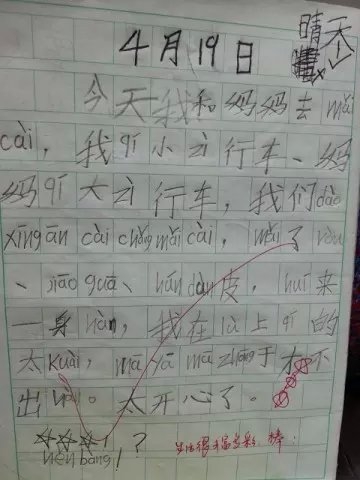 4月19日 晴天
今天我和妈妈去mǎi
cài，我qí小zì行车、妈
妈qí大zì行车，我们dào
xīngān cài chǎng mǎi cài，mǎi了ròu
、jiāo guā、hún dàn皮，huí来
一身hàn，我在lù上qí的
太kuài，mā yā mā zhōng于才不
出hàn。太开心了。
？
hěn bàng！ 生活很丰富多彩，棒！